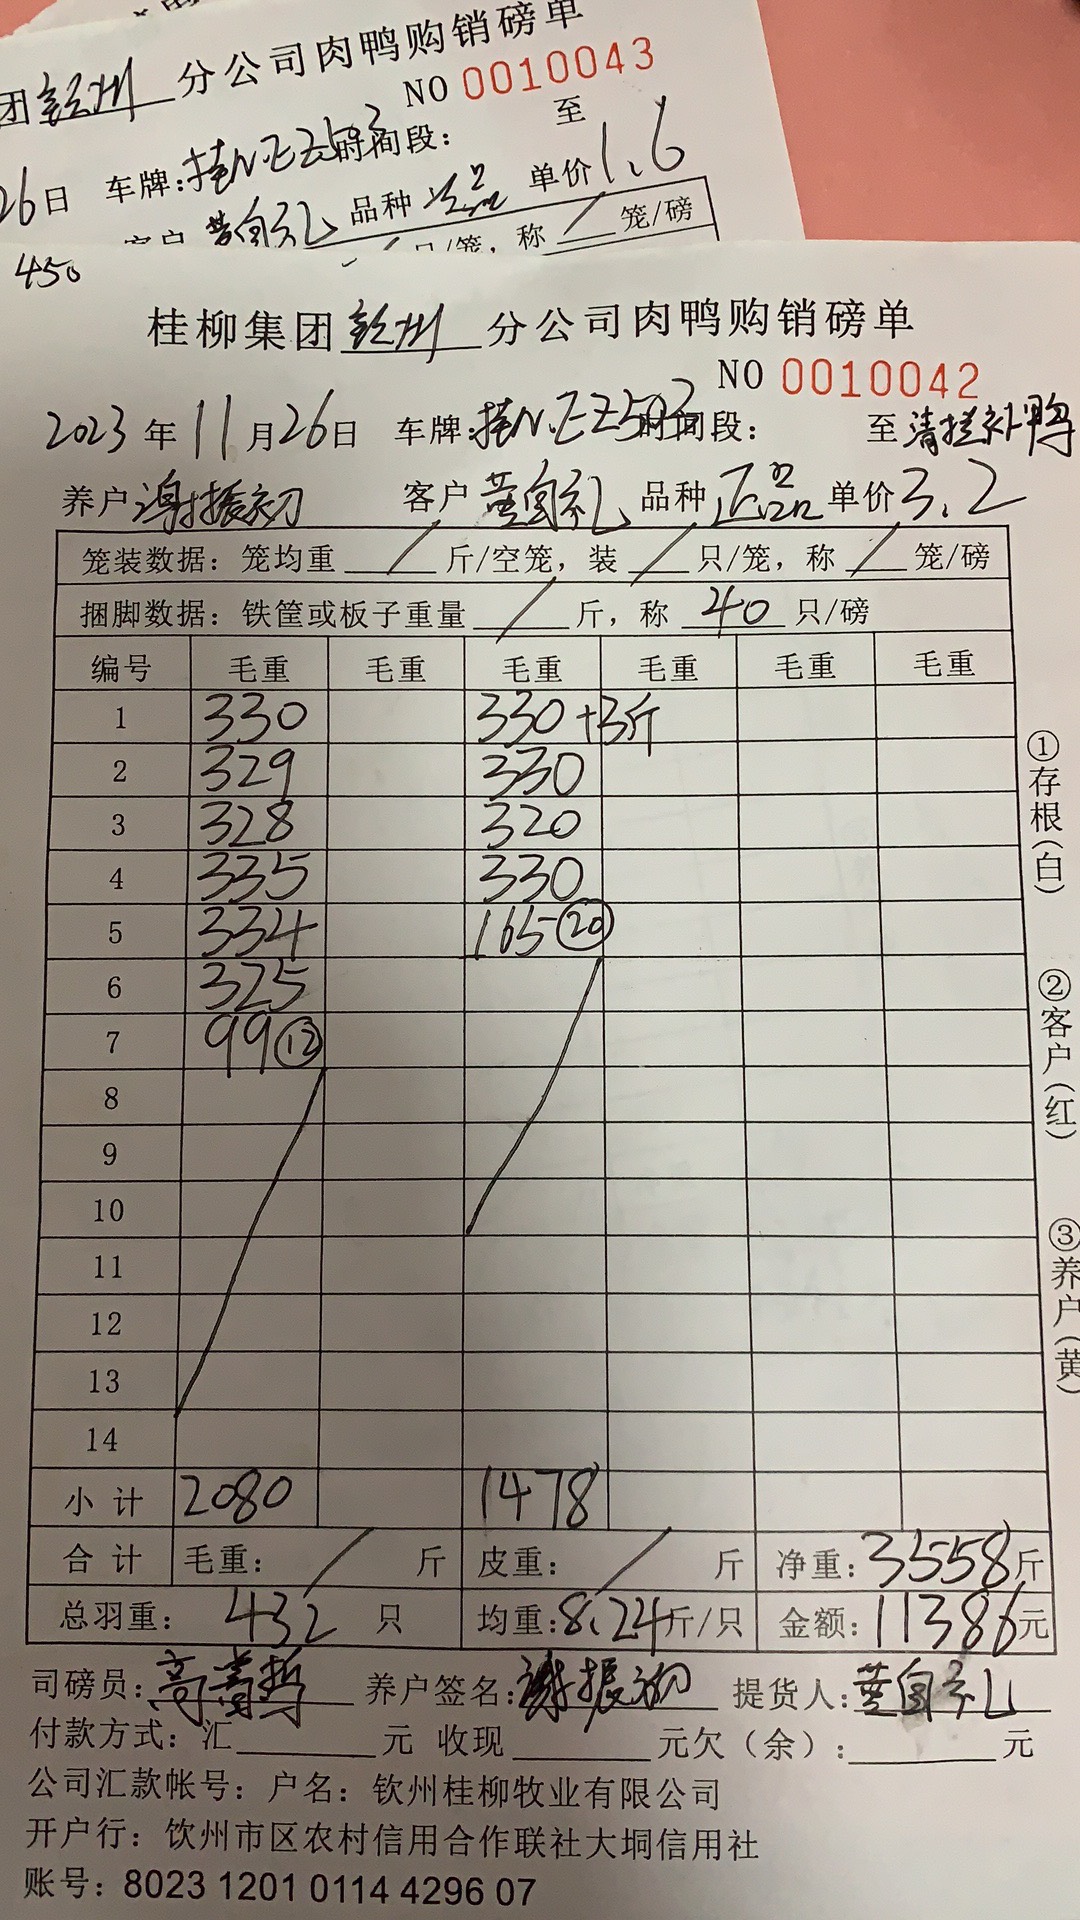 团钦州分公司肉鸭购销磅单
NO 0010043
26日 车牌:桂N.EZ503时间段: 至
客户 黄自礼 品种 正品 单价1.6
只/笼，称 / 笼/磅
450
桂柳集团钦州 分公司肉鸭购销磅单
NO 0010042
2023年11月26日 车牌:桂N.EZ503时间段: 至清拦补鸭
养户谢振初 客户黄自礼 品种正品 单价3.2
笼装数据：笼均重 / 斤/空笼，装 / 只/笼，称 / 笼/磅
捆脚数据：铁筐或板子重量 / 斤，称 40 只/磅
编号 毛重 毛重 毛重 毛重 毛重 毛重
1 330 330+3斤
2 329 330
3 328 320
4 335 330
5 334 165⑳
6 325
7 99⑫
8
9
10
11
12
13
14
小计 2080 1478
合计 毛重： / 斤 皮重： / 斤 净重：3558斤
总羽重： 432 只 均重：8.24斤/只 金额：11386元
司磅员： 养户签名：谢振初 提货人：黄自礼
付款方式：汇 元 收现 元欠（余）： 元
公司汇款帐号：户名：钦州桂柳牧业有限公司
开户行：钦州市区农村信用合作联社大垌信用社
账号：8023 1201 0114 4296 07
①存根(白)
②客户(红)
③养户(黄)